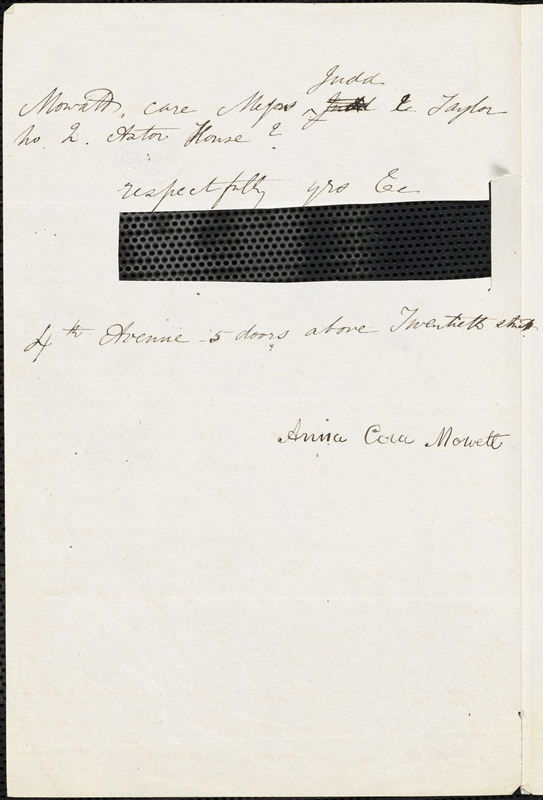 Judd
Mowatt, care Messrs Judd & Taylor
no 2. Astor House?
respectfully yrs &c
4th Avenue 5 doors above Twentieth street
Anna Cora Mowatt